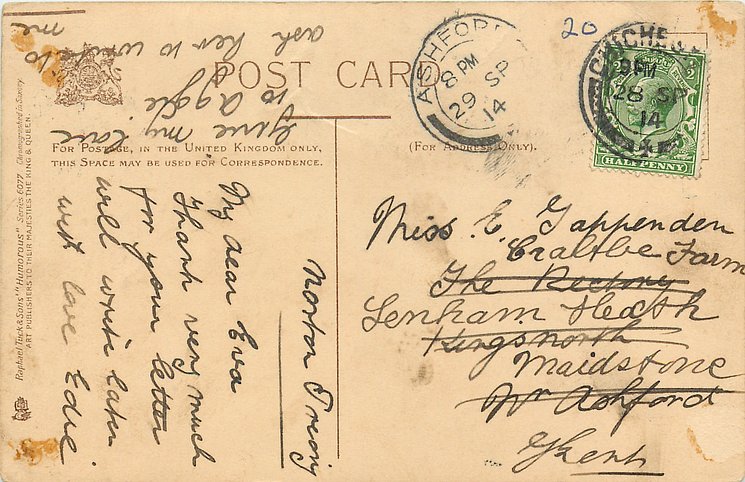 POST CARD
20
ASHFORD
8 PM
29 SP
14
CHICHESTER
9 PM
28 SP
14
HALF PENNY
FOR POSTAGE, IN THE UNITED KINGDOM ONLY,
THIS SPACE MAY BE USED FOR CORRESPONDENCE.
(FOR ADDRESS ONLY).
Raphael Tuck & Sons' "Humorous" Series 6077. Chromographed in Saxony
ART PUBLISHERS TO THEIR MAJESTIES THE KING & QUEEN.
Norton Priory
My dear Eva
Thank very much
for your letter
will write later
with love Edie
Give my love
to Aggie
ask her to write to
me
Miss E. Tappenden
Farm
The Rectory
Lenham Heath
Kingsnorth
Maidstone
Nr Ashford
Kent